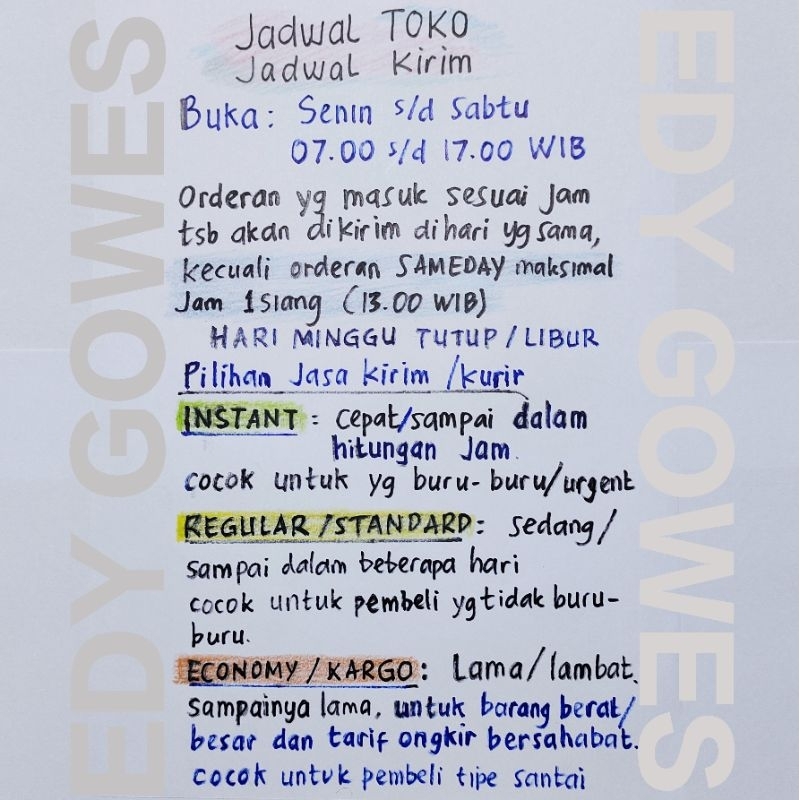 Jadwal TOKO
Jadwal Kirim
Buka: Senin s/d Sabtu
07.00 s/d 17.00 WIB
Orderan yg masuk sesuai Jam
tsb akan dikirim dihari yg sama,
kecuali orderan SAMEDAY maksimal
Jam 1 Siang (13.00 WIB)
HARI MINGGU TUTUP / LIBUR
Pilihan Jasa Kirim / Kurir
INSTANT : Cepat/sampai dalam
hitungan Jam.
cocok untuk yg buru-buru/urgent
REGULAR /STANDARD: Sedang/
sampai dalam beberapa hari
cocok untuk pembeli yg tidak buru-
buru.
ECONOMY / KARGO : Lama/lambat.
Sampainya lama, untuk barang berat/
besar dan tarif ongkir bersahabat.
cocok untuk pembeli tipe santai
EDY GOWES
EDY GOWES